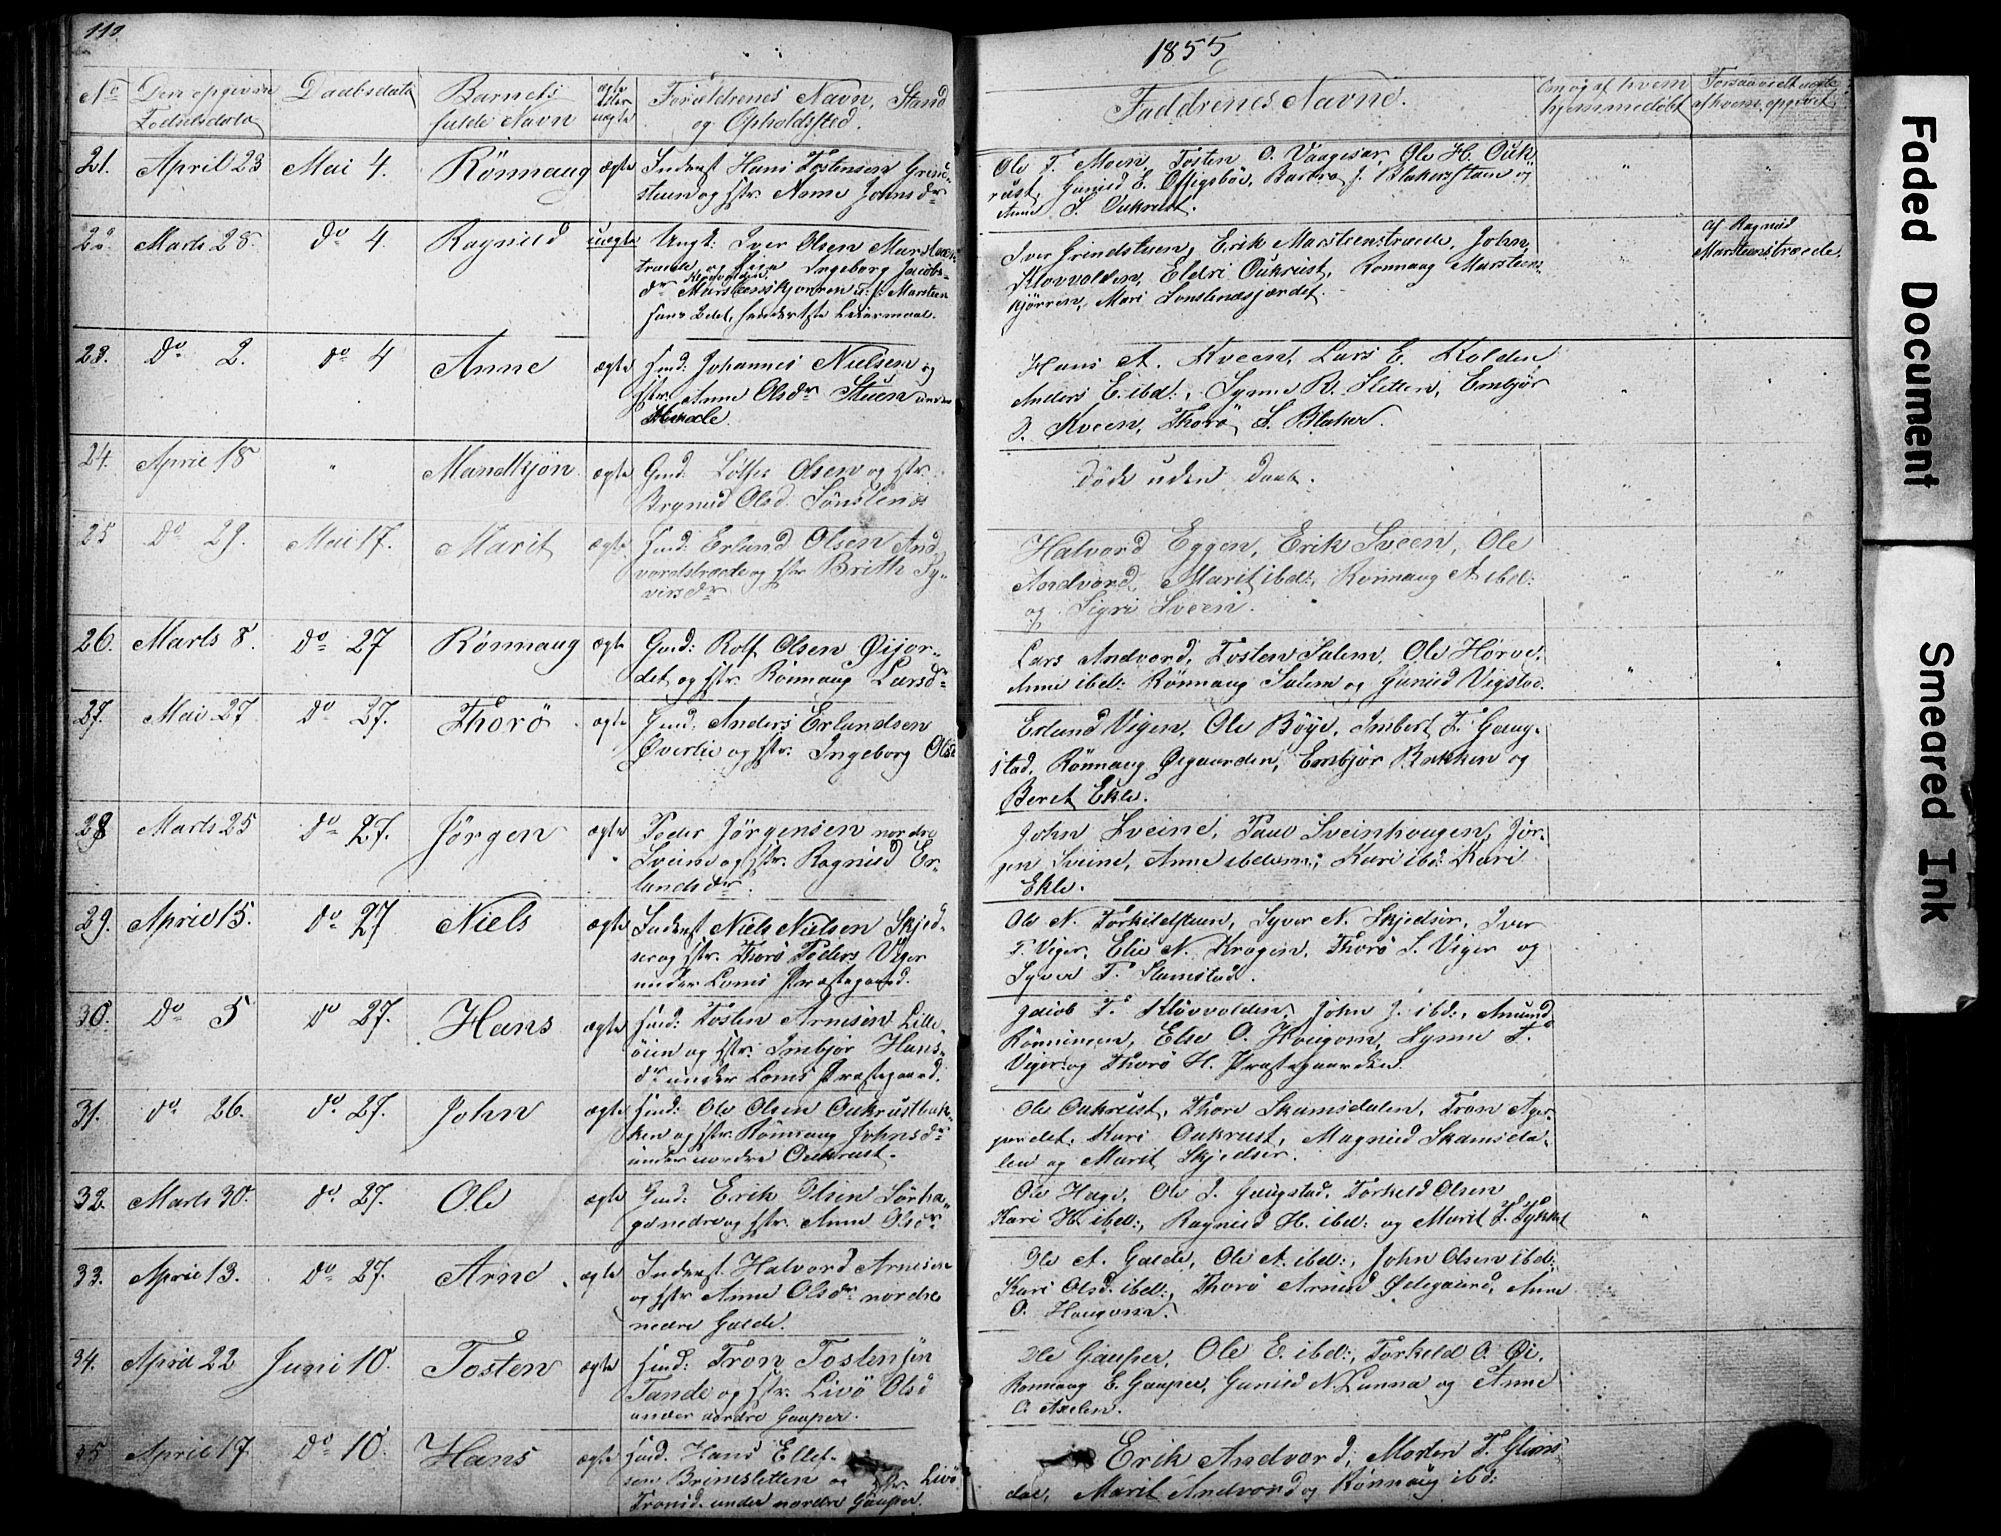 110.
1855
No Den opgivne Fødselsdato Daabsdato Barnets fulde Navn ægte eller uægte Forældrenes Navn, Stand og Opholdssted.
Faddrenes Navne. Om og af hvem hjemmedøbt af hvem opgivet
21. April 23 Mai 4. Rönnaug ægte Inderst Hans Tostensen Grind-
stuen og Hstr. Anne Johnsdr
Ole T. Moen, Tosten O. Vaagesar, Ole H. Ouk-
rust, Gunild E. Offigsböe, Barbro J. Blakerstuen og
Anne S. Oukrust.
22. Marts 28. do 4. Ragnild uægte Ungk: Iver Olsen Marsteen-
træde og Pige Ingeborg Jacobs-
dr Marsteenskjörren u. f: Marsteen
hans 2det, hendes 1ste Leiermaal.
Iver Grindstuen, Erik Marsteenstræde, John
Klovvolden, Eldri Oukrust, Rönnaug Marsteen-
kjörren, Mari Sonstenesjordet.
Af Ragnild
Marsteenstræde.
23. Do 2. do 4 Anne ægte Hmd: Johannes Nielsen og
Hstr. Anne Olsdr Stuen under
Hans A. Kveen, Lars E. Kolden,
Anders E. ibd:, Synne R. Sletten, Embjör
O. Kveen, Thorö S. Blaker.
24. April 18 " Mandkjön ægte Gmd: Olsen og Hstr.
Brynild Olsd. Sönstenes
Döde uden Daab.
25 Do 29. Mai 17. Marit ægte Hmd: Erlund Olsen And-
vordstræde og Hstr Brith Sy-
versdr
Halvord Eggen, Erik Sveen, Ole
Andvord, Marit ibd:, Rönnaug A ibd:
og Sigri Sveen.
26. Marts 8. do 27 Rönnaug ægte Gmd: Rolf Olsen Öijor-
det og Hstr. Rönnaug Larsdr
Lars Andvord, Tosten Sulem, Ole Hörve,
Anne ibd: Rönnaug Sulem og Gunild Vigstad.
27. Mai 27 Do 27. Thorö ægte Gmd: Anders Erlundsen
Øverlie og Hstr: Ingeborg Olsd
Erlund Vigen, Ole Böye, Imbert T. Gaug-
stad, Rönnaug Øigaarden, Embjör Bakken og
Beret Ekle.
28 Marts 25 Do 27. Jörgen ægte Peder Jörgensen nordre
Sveine og Hstr. Ragnild Er-
landsdr.
John Sveine, Paul Sveinhougen, Jör-
gen Sveine, Anne ibdem:, Kari ibd: Kari
Ekle.
29. April 15. do 27 Niels ægte Inderst Niels Nielsen Skjed-
ser og Hstr. Thorö Peders Viger
under Loms Præstegaard.
Ole N. Torkildstuen, Syver N. Skjedser, Iver
T. Viger, Elie N. Krogen, Thorö S. Viger og
Syver T. Slamstad.
30. Do 5 do 27. Hans ægte Hmd: Tosten Arnesen Lille-
öien og Hstr: Imbjör Hans-
dr under Loms Præstegaard.
Jacob T. Klövvolden, John J. ibd:, Amund
Rönningen, Else O. Hougom, Synne T.
Viger og Thorö H. Præstegaarden.
31. do 26. do 27. John ægte Hmd: Ole Olsen Oukrustbak-
ken og Hstr. Rönnaug Johnsdr
under nordre Oukrust.
Ole Oukrust, Thore Skamsdalen, Tron Ager-
jordet, Kari Oukrust, Magnild Skamsda-
len og Marit Skjedser.
32. Marts 30. do 27. Ole ægte Gmd: Erik Olsen Sörha-
ge nedre og Hstr. Anne Olsdr
Ole Hage, Ole J. Gaugstad, Torkeld Olsen
Kari H. ibd:, Ragnild H. ibd: og Marit
33. April 13. Do 27. Arne ægte Inderst Halvord Arnesen
og Hstr Anne Olsdr nordre
nedre Galde.
Ole A. Galde, Ole A. ibd:, John Olsen ibd:
Kari Olsd. ibd:, Thorö Arnesd Ødegaard, Anne
O. Hougom.
34. April 22 Juni 10. Tosten ægte Hmd: Tron Tostensen
Tande og Hstr. Livö Olsd
under nordre Gaupar.
Ole Gaupar, Ole E. ibd:, Torkeld O. Øi,
Rönnaug E. Gaupar, Gunild N. Lunna og Anne
O.
35 April 17. Do 10. Hans ægte Hmd. Hans Ellef-
sen Brimsletten og Hstr. Livö
Tronsd. under nordre Gaupar.
Erik Andvord, Morten T. Glims-
dal, Marit Andvord og Rönnaug ibd:
Faded Document
Smeared Ink